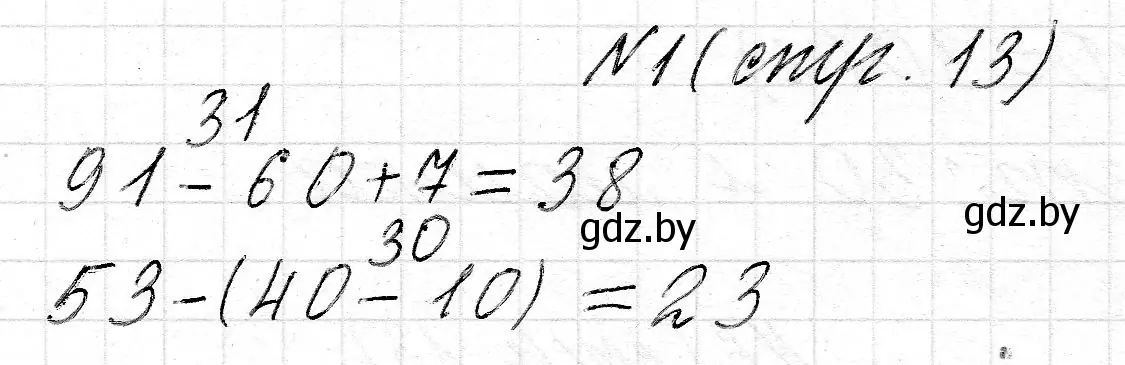 №1 (стр. 13)
31
91 - 60 + 7 = 38
gdz.by
gdz.by
30
53 - (40 - 10) = 23